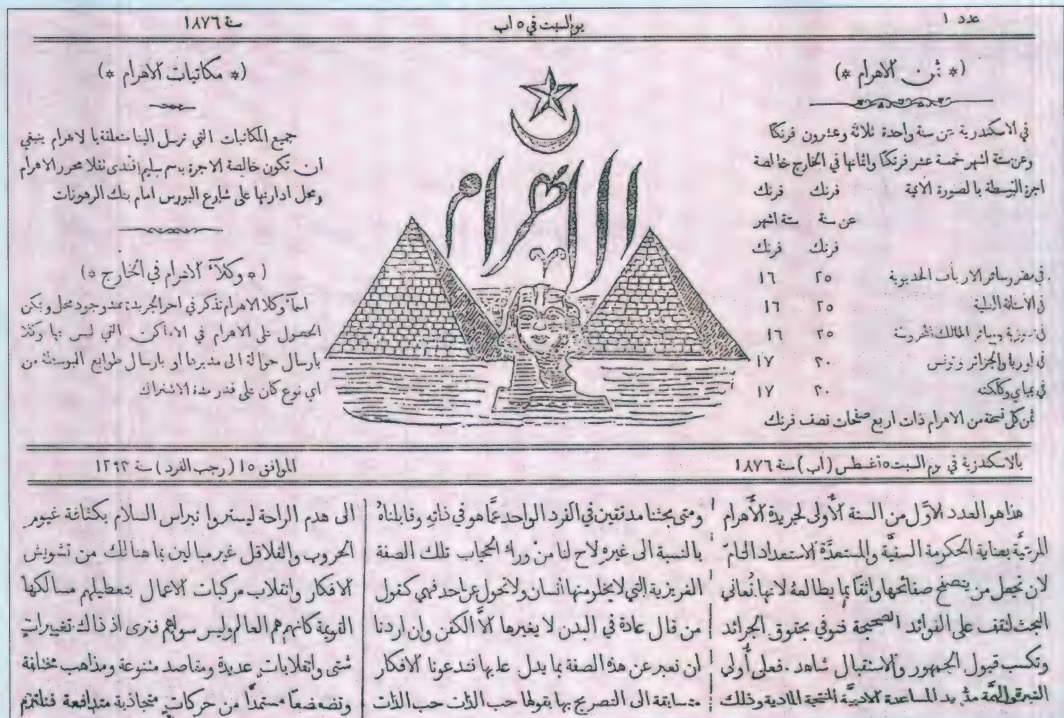 عدد ١
يوم السبت في ٥ اب
سنة ١٨٧٦
(* ثمن الاهرام *)
في الاسكندرية عن سنة واحدة ثلاثة وعشرون فرنكا
وعن ستة اشهر خمسة عشر فرنكا واثمانها في الخارج خالصة
اجرة البوسطة بالصورة الاتية فرنك فرنك
عن سنة ستة اشهر
فرنك فرنك
٢٥ ١٦
في الأستانة العلية ٢٥ ١٦
في وسائر الممالك المحروسة ٢٥ ١٦
في اوربا والجزائر وتونس ٣٠ ١٧
في بمباي وكلكته ٣٠ ١٧
ثمن كل نسخة من الاهرام ذات اربع صفحات نصف فرنك
الاهرام
(* مكاتبات الاهرام *)
جميع المكاتبات التي ترسل الينا متعلقة بالاهرام ينبغي
ان تكون خالصة الاجرة باسم سليم افندي نقلا محرر الاهرام
ومحل ادارتها على شارع البورس امام بنك الرهونات
(* وكلآء الاهرام في الخارج *)
اسمآء وكلا الاهرام تذكر في اخر الجريدة وجود محل ويمكن
الحصول على الاهرام في الاماكن التي ليس بها وكلا
بارسال حوالة الى مديرها او بارسال طوابع البوسطة من
اي نوع كان على قدر مدة الاشتراك
بالاسكندرية في يوم السبت ٥ اغسطس (اب) سنة ١٨٧٦
الموافق ١٥ (رجب الفرد) سنة ١٢٩٣
هذا هو العدد الاوّل من السنة الأولى لجريدة الأهرام
المرتيّة بعناية الحكومة السنيّة والمستعدّة الاستعداد التامّ
لان تجعل من يتصفح صفائحها واثقًا بما يطالعهُ لانها تُعاني
البحث لتقف على الفوائد الصحيحة فتوفي بحقوق الجرائد
وتكسب قبول الجمهور والاستقبال شاهد. فعلى أُولي
للمساعدة الادبيّة النتيجة المادية وذلك
ومتى بحثنا مدققين في الفرد الواحد عمَّا هو في ذاتهِ وقابلناهُ
بالنسبة الى غيره لاح لنا من وراء الحجاب تلك الصفة
الغريزية التي لا يخلو منها انسان ولا تحول عن احد فهي كقول
من قال عادة في البدن لا يغيرها الاَّ الكفن وان اردنا
ان نعبر عن هذه الصفة بما يدل عليها فتدعونا الافكار
متسابقة الى التصريح بها بقولها حب الذات حب الذات
الى هدم الراحة ليستروا نبراس السلام بكثافة غيوم
الحروب والقلاقل غير مبالين بما هنالك من تشويش
الافكار وانقلاب مركبات الاعمال بتعطيلهم مسالكها
القويمة كانهم هم العالم وليس سواهم فنرى اذ ذاك تغييرات
شتى وانقلابات عديدة ومقاصد متنوعة ومذاهب مختلفة
وتضعضعاً مستمداً من حركات متجاذبة متدافعة فتلتزم